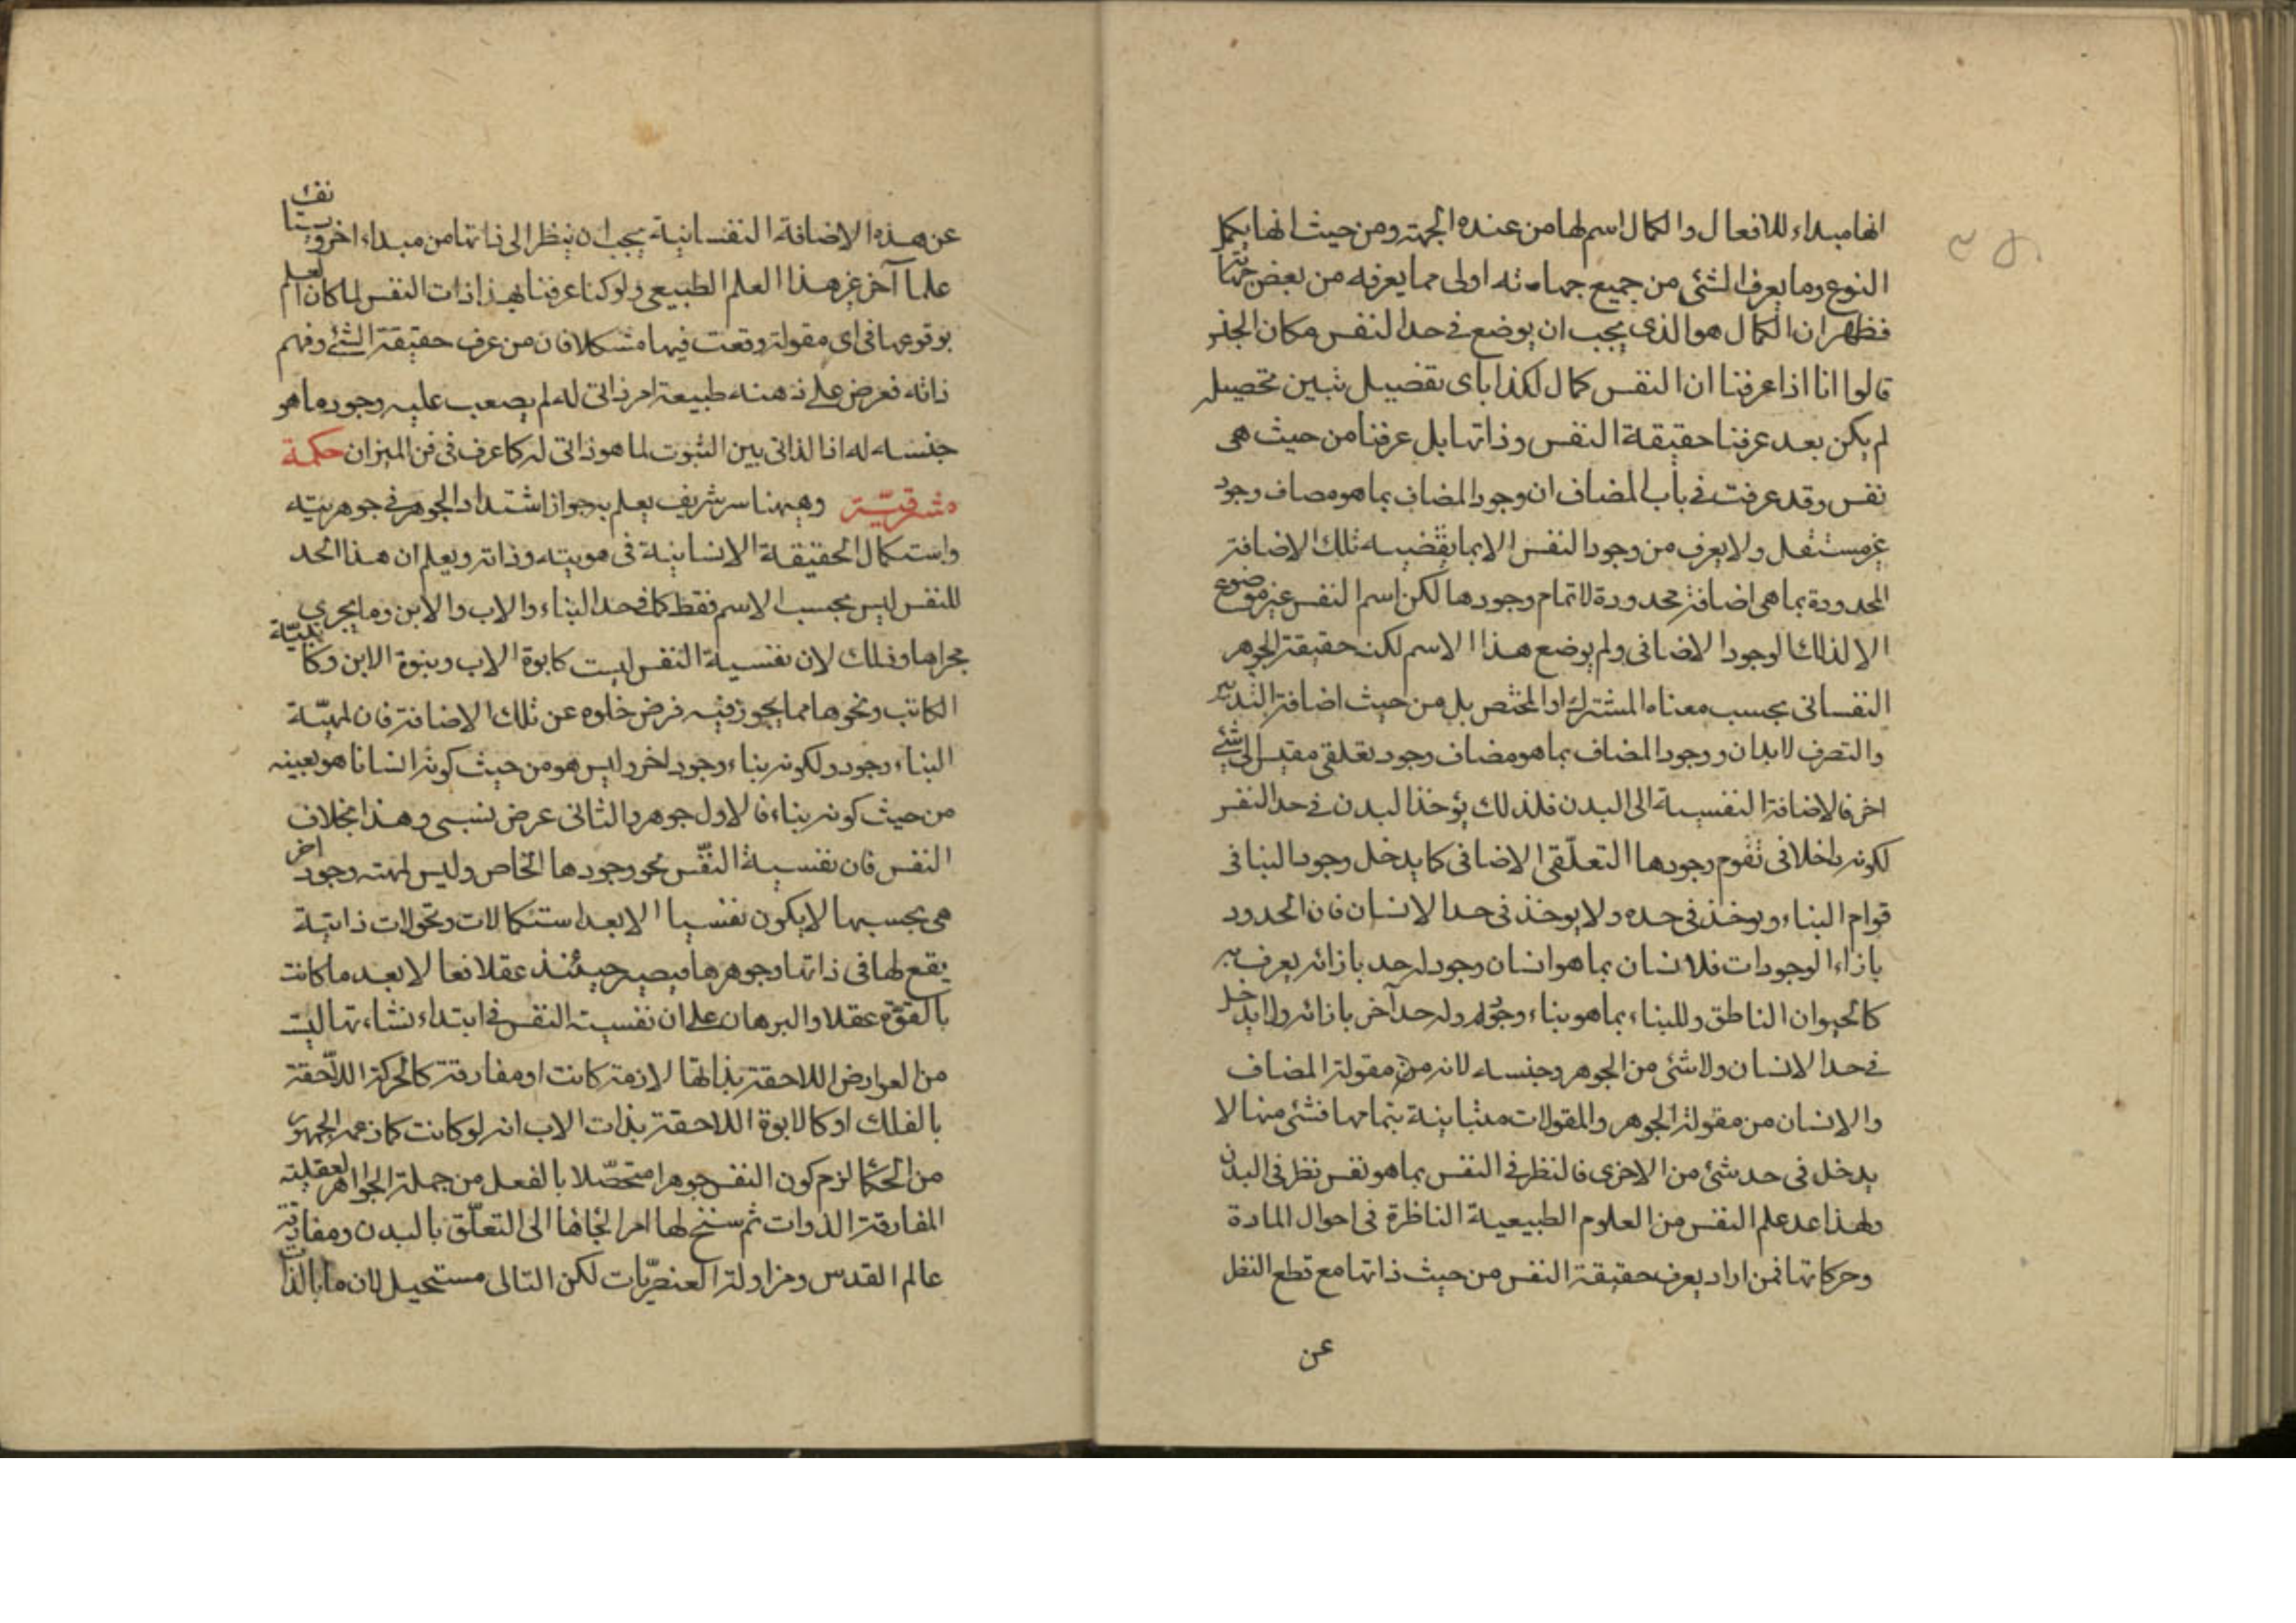 انها مبداء للافعال والكمال اسم لها من عنده الجهة ومن حيث انها يكمل
النوع وما يعرف الشئ من جميع جهاته اولى مما يعرفه من بعض جهاته
فظهر ان الكمال هو الذى يجب ان يوضع فى حد النفس مكان الجنس
قالوا انا اذا عرفنا ان النفس كمال لكذا باى تفصيل تبين تحصيله
لم يكن بعد عرفنا حقيقة النفس وذاتها بل عرفنا من حيث هى
نفس وقد عرفت فى باب المضاف ان وجود المضاف بما هو مضاف وجود
غير مستقل ولا يعرف من وجود النفس الا بما يقضيه تلك الاضافة
المحدودة بما هى اضافة محدودة لا تمام وجودها لكن اسم النفس غير موضوع
الا لذلك الوجود الاضافى ولم يوضع هذا الاسم لكنه حقيقة الجوهر
النفسانى بحسب معناه المشترك او المختص بل من حيث اضافة التدبير
والتصرف لابدان ووجود المضاف بما هو مضاف وجود تعلقى مقيس الى شئ
اخر فالاضافة النفسية الى البدن فلذلك يؤخذ البدن فى حد النفس
لكونه داخلا فى تقوم وجودها التعلّقى الاضافى كما يدخل وجود البنا فى
قوام البناء ويوخذ فى حده ولا يوخذ فى حد الانسان فان الحدود
بازاء الوجودات فلانسان بما هو انسان وجود له حد بازائه يعرف به
كالحيوان الناطق وللبناء بما هو بناء وجود وله حد آخر بازائه ولا يدخل
فى حد الانسان ولا شئ من الجوهر وجنسه لانه من مقولة المضاف
والانسان من مقولة الجوهر والمقولات متباينة بتمامها فشئ منها لا
يدخل فى حد شئ من الاخرى فالنظر فى النفس بما هو نفس نظر فى البدن
ولهذا عد علم النفس من العلوم الطبيعية الناظرة فى احوال المادة
وحركاتها فمن اراد يعرف حقيقة النفس من حيث ذاتها مع قطع النظر
عن
عن هذه الاضافة النفسانية يجب ان ينظر الى ذاتها من مبداء اخر ويستانف
علما آخر غير هذا العلم الطبيعى ولو كنا عرفنا بهذا ذات النفس لما كان العلم
بوقوعها فى اى مقولة وقعت فيها مشكلا فان من عرف حقيقة الشئ وفهم
ذاته فعرض على ذهنه طبيعة امر ذاتى له لم يصعب عليه وجود ما هو
جنسه له اذ الذاتى بين الثبوت لما هو ذاتى له كما عرف فى فن الميزان حكمة
مشرقيّة وههنا سر شريف يعلم به جواز اشتداد الجوهر فى جوهريته
واستكمال الحقيقة الانسانية فى هويته وذاته ويعلم ان هذا الحد
للنفس ليس بحسب الاسم فقط كما فى حد البناء والاب والابن وما يجرى
مجراها وذلك لان نفسية النفس ليست كابوة الاب وبنوة الابن وكاتبيّة
الكاتب ونحوها مما يجوز فيه فرض خلوه عن تلك الاضافة فان لمهيّة
البناء وجود ولكونه بناء وجود اخر وليس هو من حيث كونه انسانا هو بعينه
من حيث كونه بناء فالاول جوهر والثانى عرض نسبى وهذا بخلاف
النفس فان نفسية النفّس نحو وجودها الخاص وليس لمهيته وجود اخر
هى بحسبها لا يكون نفسيا الا بعد استكمالات وتحولات ذاتية
يقع لها فى ذاتها وجوهرها فيصير حينئذ عقلا فعالا بعد ما كانت
بالقوّة عقلا والبرهان على ان نفسية النفس فى ابتداء نشاءتها ليست
من العوارض اللاحقة بذاتها لازمة كانت او مفارقة كالحركة اللّاحقة
بالفلك او كالابوة اللاحقة بذات الاب انه لو كانت كما زعمه الجمهور
من الحكما لزم كون النفس جوهرا متحصّلا بالفعل من جملة الجواهر العقلية
المفارقة الذوات ثم سنخ لها امر الجاها الى التعلّق بالبدن ومفارقة
عالم القدس ومزاولة العنصريّات لكن التالى مستحيل لان ما بالذات